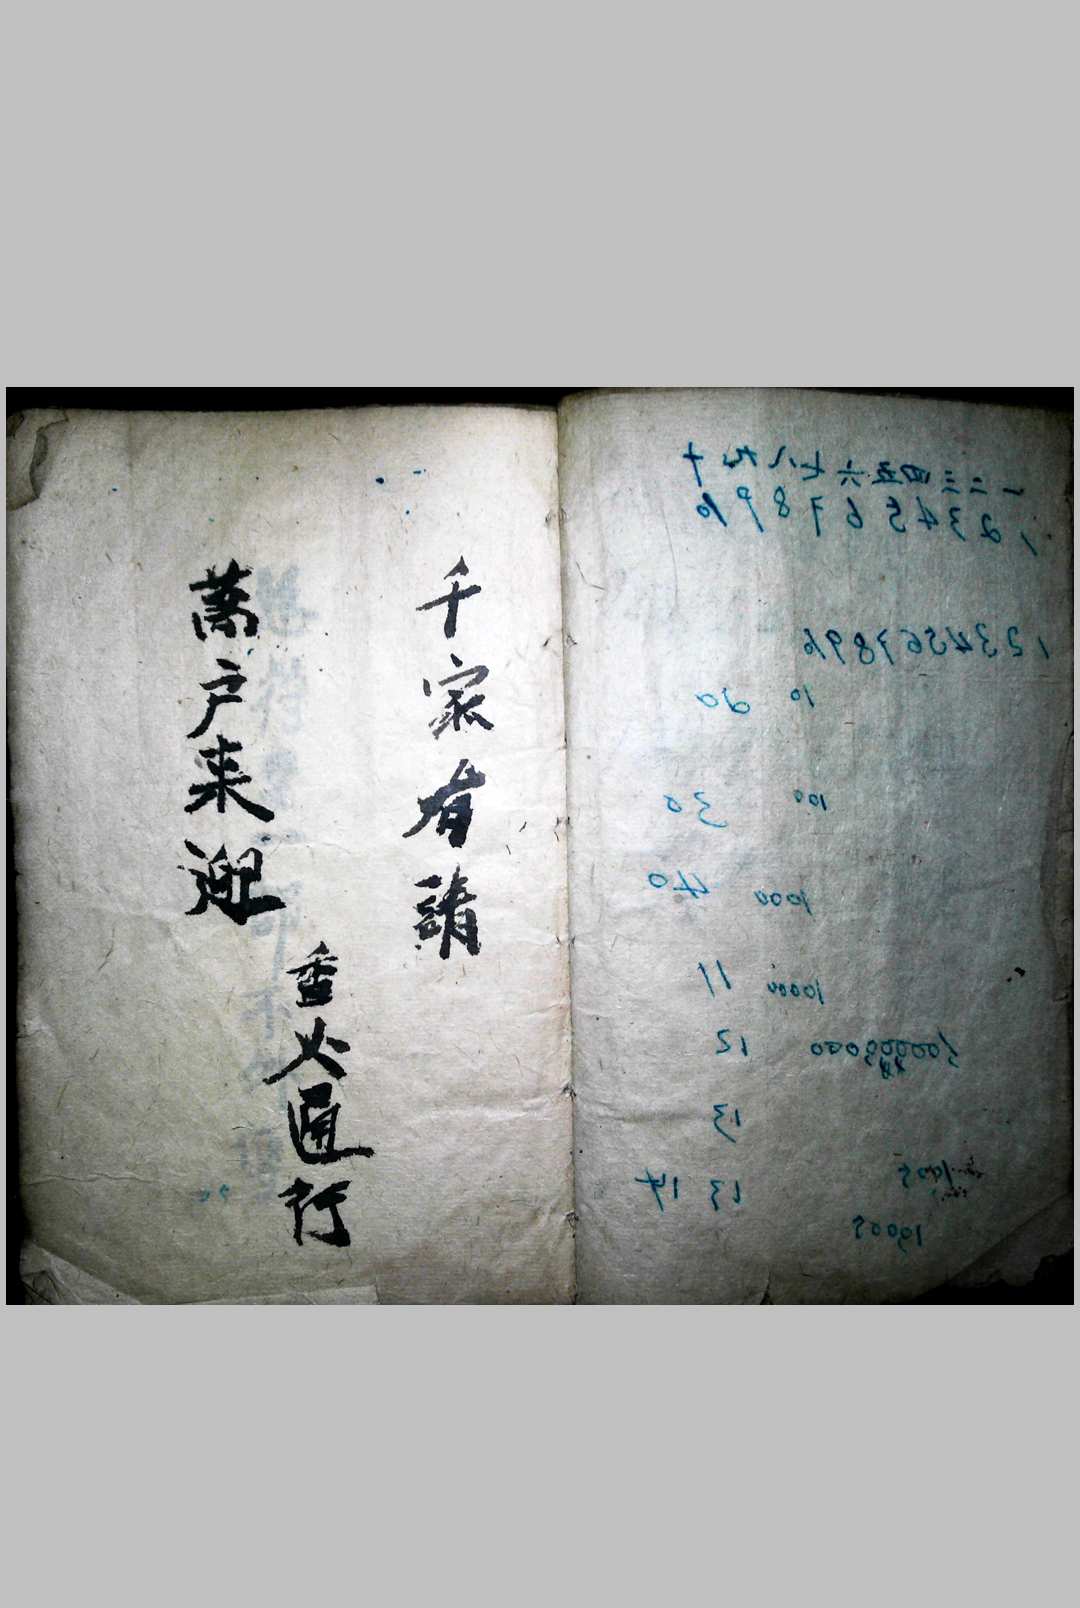 一二三四五六七八九十
1 2 3 4 5 6 7 8 9 10
1 2 3 4 5 6 7 8 9 10
10 20
100 30
1000 40
10000 11
12
13
13 14
千家有請
萬户来迎
香火通行